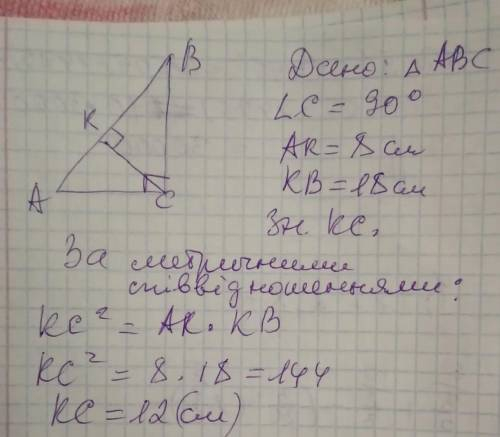 B
K
A
C
Дано: △ ABC
∠C = 90°
AK = 8 см
KB = 18 см
Зн. KC,
За метричними
співвідношеннями:
KC² = AK · KB
KC² = 8 · 18 = 144
KC = 12 (см)